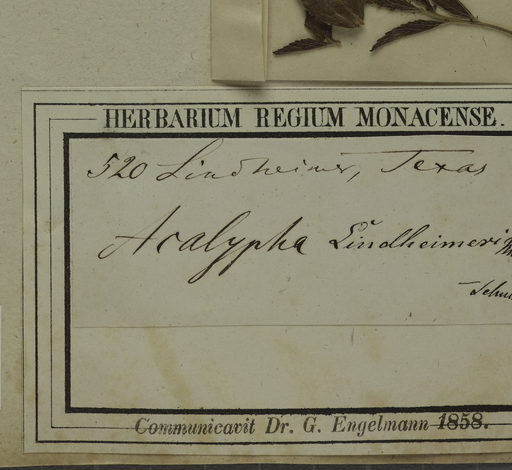 HERBARIUM REGIUM MONACENSE.
520 Lindheimer, Texas
Acalypha Lindheimeri
Communicavit Dr. G. Engelmann 1858.